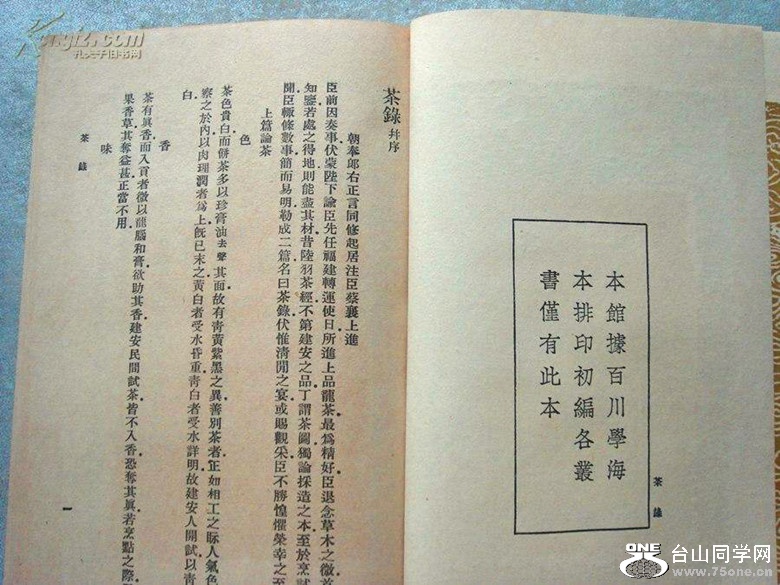 本館據百川學海
本排印初編各叢
書僅有此本
茶錄
茶錄 幷序
朝奉郞右正言同修起居注臣蔡襄上進
臣前因奏事伏蒙陛下諭臣先任福建轉運使日所進上品龍茶最爲精好臣退念草木之微首
知鑒若處之得地則能盡其材昔陸羽茶經不第建安之品丁謂茶圖獨論採造之本至於烹試
聞臣輒條數事簡而易明勒成二篇名曰茶錄伏惟淸閒之宴或賜觀采臣不勝惶懼榮幸之至
上篇論茶
色
茶色貴白而餅茶多以珍膏油去聲其面故有靑黃紫黑之異善別茶者正如相工之眎人氣色
察之於內以肉理潤者爲上旣已末之黃白者受水昏重靑白者受水詳明故建安人開試以靑
白
香
茶有眞香而入貢者微以龍腦和膏欲助其香建安民間試茶皆不入香恐奪其眞若烹點之際
果香草其奪益甚正當不用
味
茶錄
一
孔夫子旧书网
ONE
台山同学网
www.75one.cn